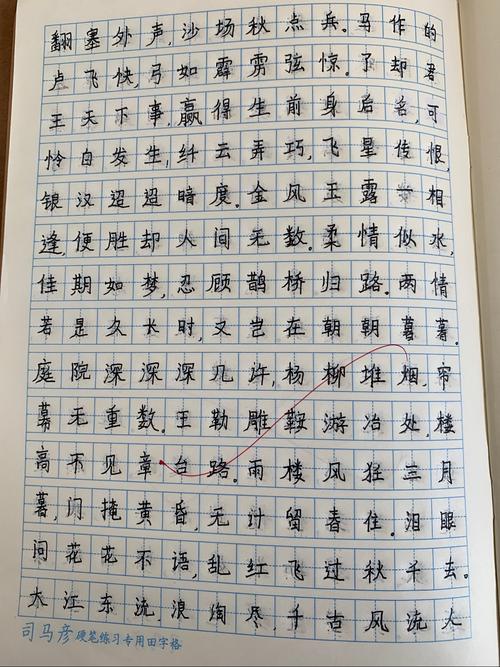 翻塞外声,沙场秋点兵。马作的
卢飞快,弓如霹雳弦惊。了却君
王天下事,赢得生前身后名,可
怜白发生,纤云弄巧,飞星传恨,
银汉迢迢暗度。金风玉露一相
逢,便胜却人间无数。柔情似水,
佳期如梦,忍顾鹊桥归路。两情
若是久长时,又岂在朝朝暮暮。
庭院深深深几许,杨柳堆烟,帘
幕无重数。玉勒雕鞍游冶处,楼
高不见章台路。雨楼风狂三月
暮,门掩黄昏,无计留春住。泪眼
问花花不语,乱红飞过秋千去。
大江东流,浪淘尽,千古风流人
司马彦硬笔练习专用田字格